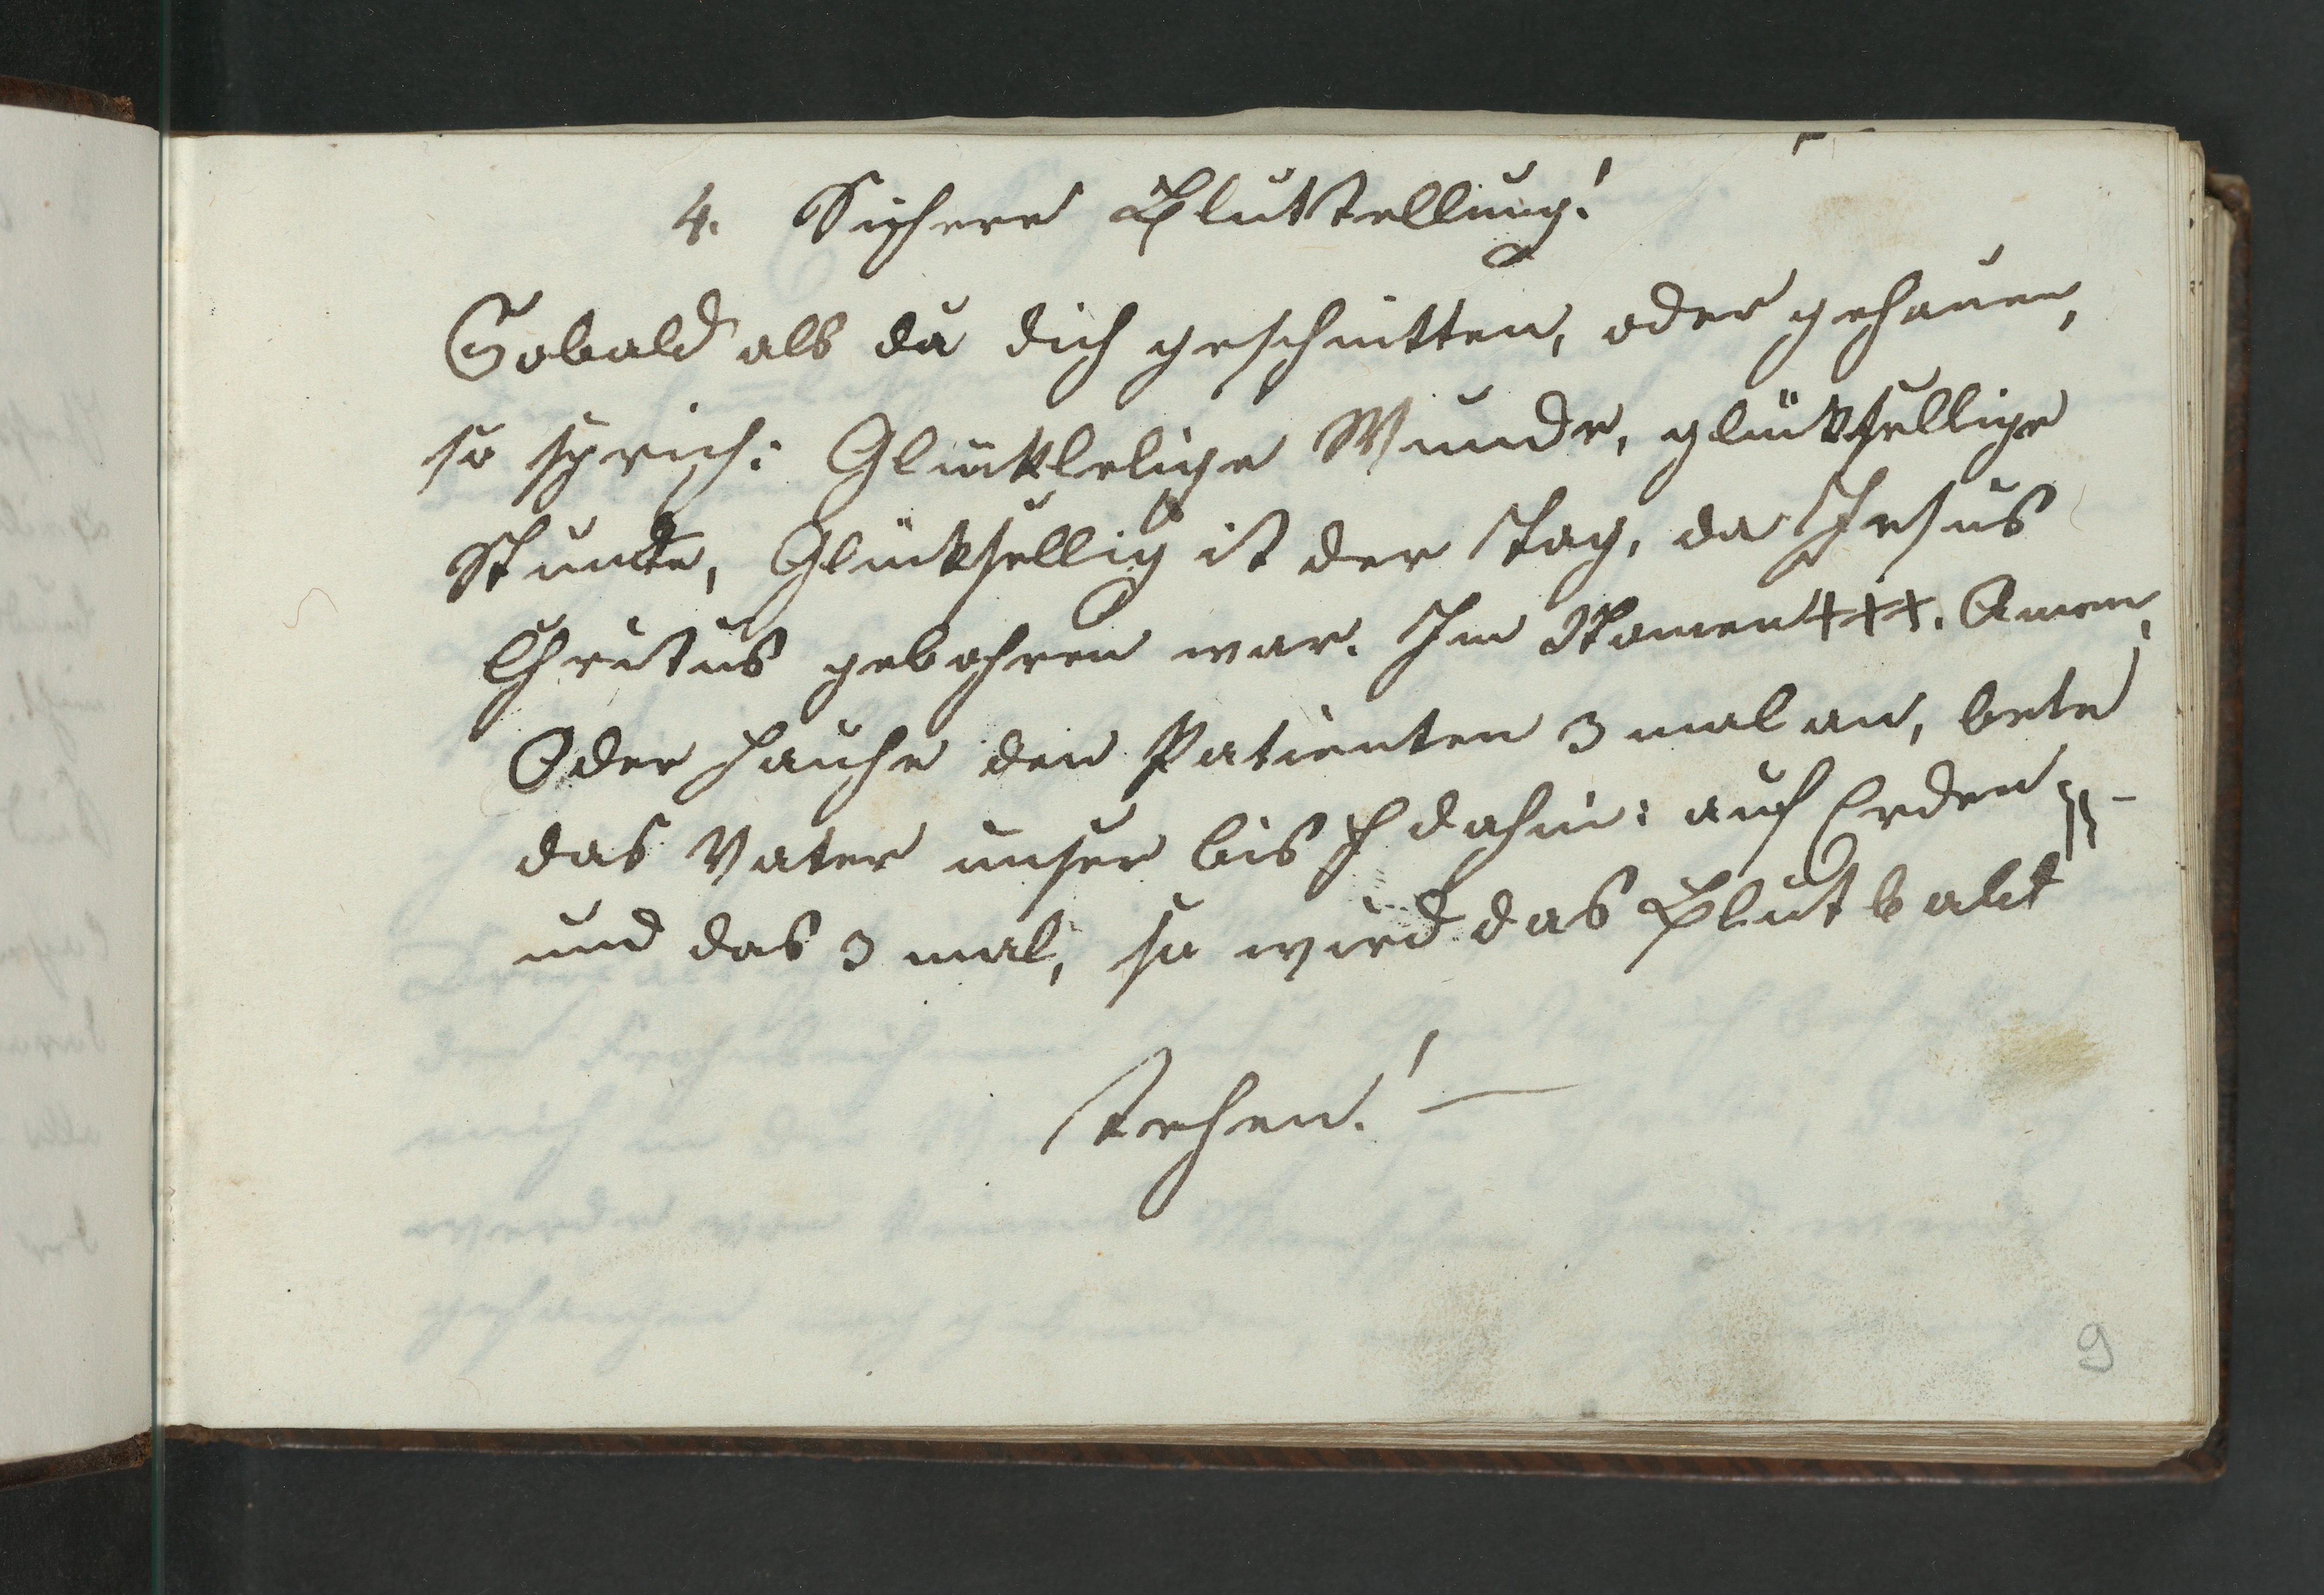 4. Sichere Blutstellung!
Sobald als du dich geschnitten, oder gehauen,
so sprich: Glückselige Wunde, glücksellige
Stunde, Glücksellig ist der Tag, da Jesus
Christus gebohren war. Im Namen +++. Amen,
Oder hauche den Patienten 3 mal an, bete
das Vater unser bis dahin: auf Erden
und das 3 mal, so wird das Blut bald
stehen! —
9